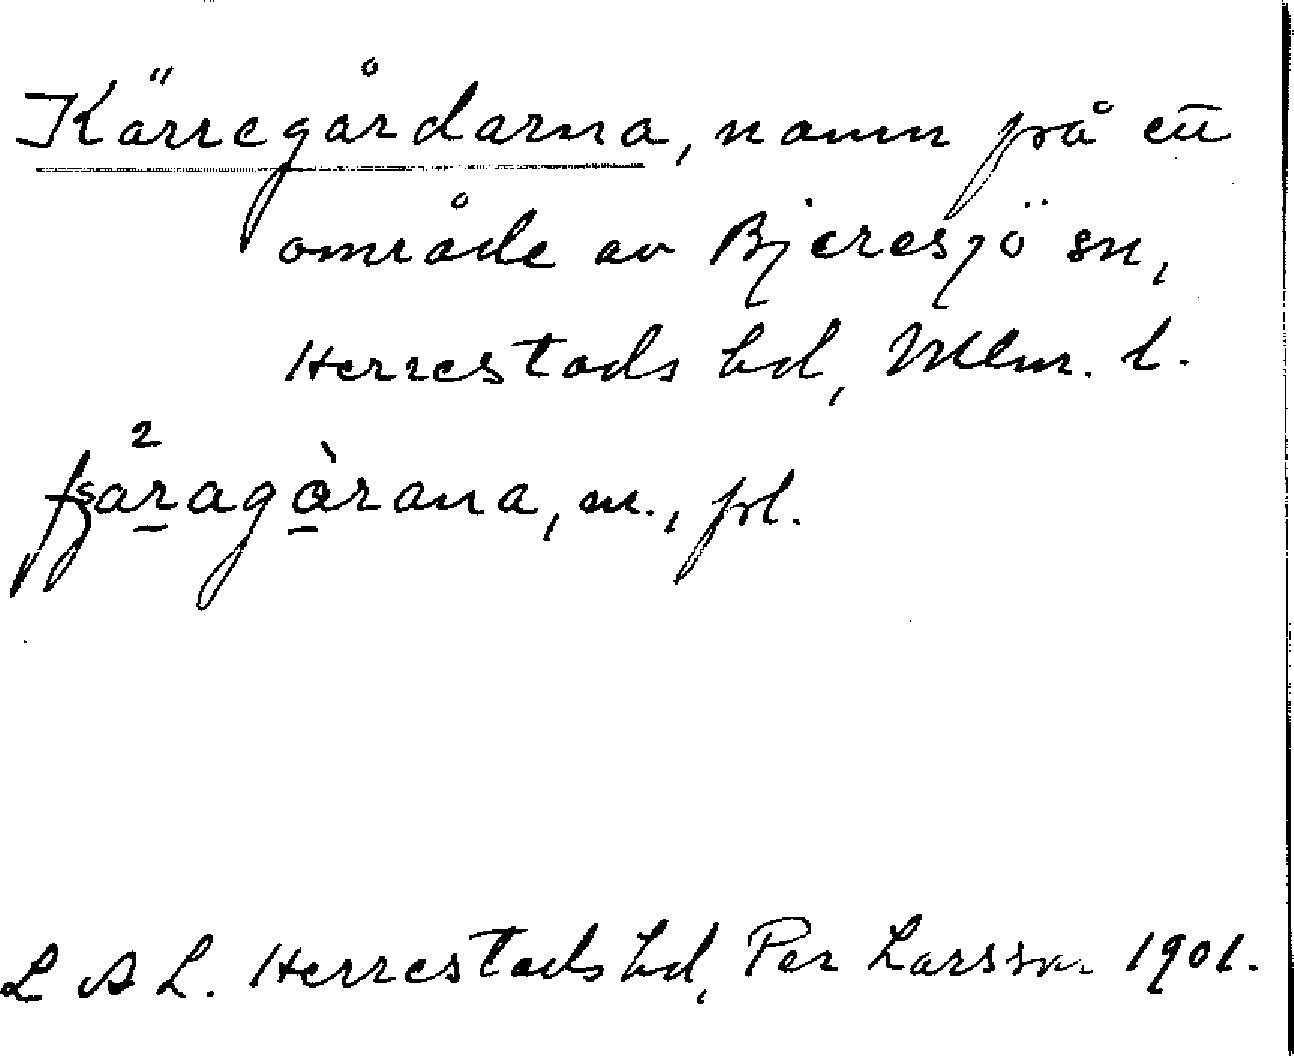 Kärregårdarna, namn på ett
område av Bjeresjö sn,
Herrestads hd, Mlm. l.
m., pl.
L A L. Herrestads hd, Per Larsson 1901.